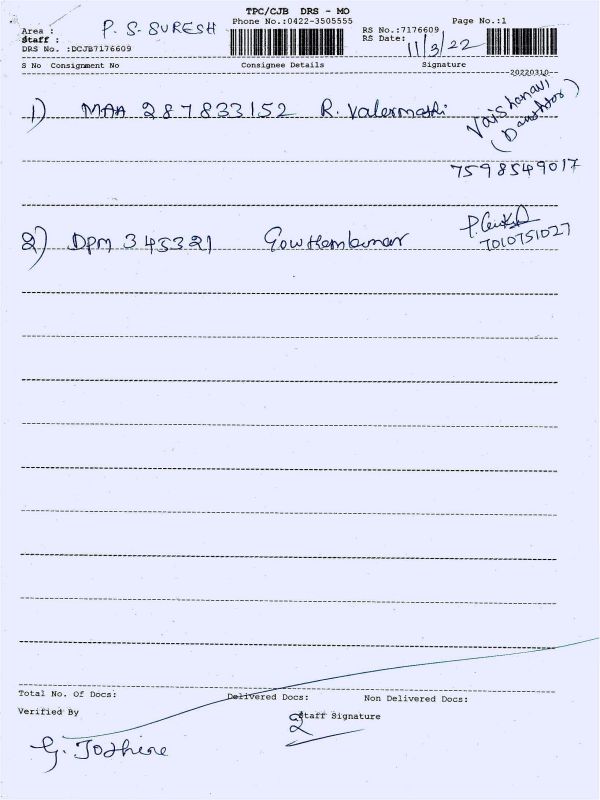 TPC/CJB DRS - MO
Phone No.:0422-3505555 Page No.:1
Area : P. S. SURESH RS No.:7176609
Staff : RS Date: 11/3/22
DRS No. :DCJB7176609
S No Consignment No Consignee Details Signature
20220310
1) MAA 287833152 R. Valermathi Vaishanavi
(Daughter)
7598549017
2) DPM 345321 Gowthamkumar
7010751027
Total No. Of Docs: Delivered Docs: Non Delivered Docs:
Verified By Staff Signature
2
G. Jothine